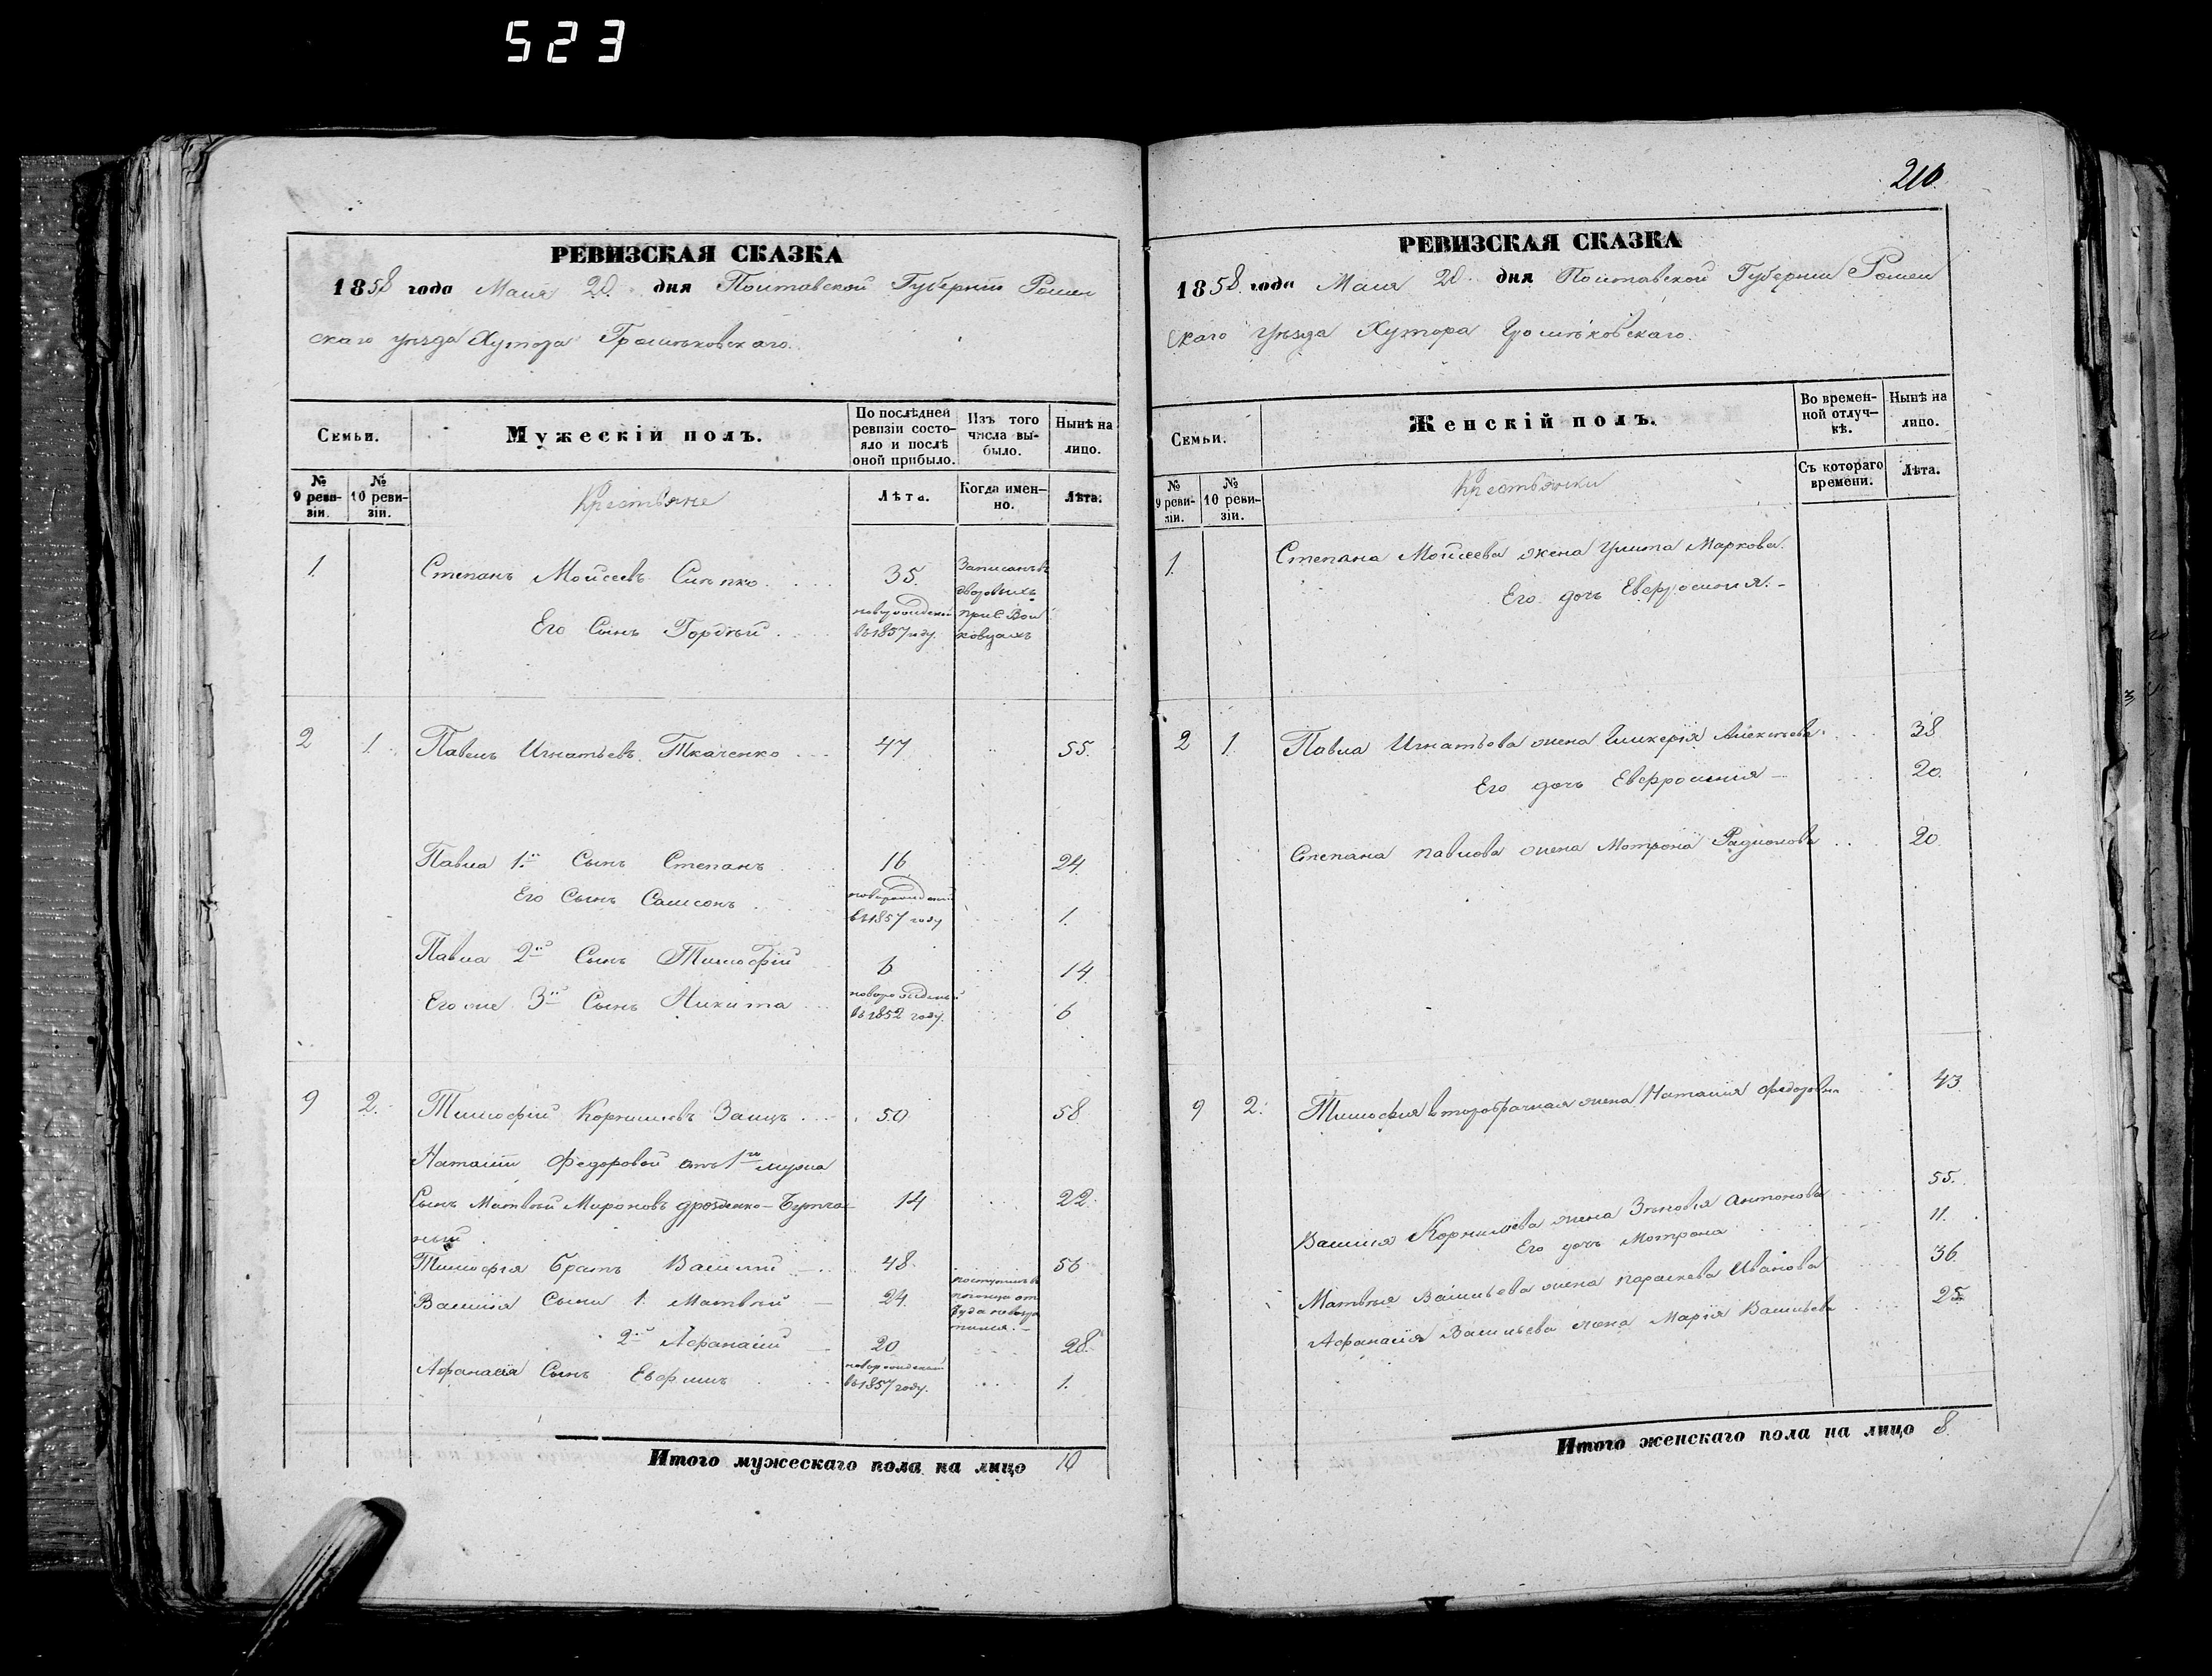 523
РЕВИЗСКАЯ СКАЗКА
1858 года Мая 20. дня Полтавской Губерніи Ромен
скаго уѣзда Хутора
Семьи.
Мужескій полъ.
По послѣдней ревизіи состояло и послѣ оной прибыло.
Изъ того числа выбыло.
Нынѣ на лицо.
№ 9 ревизіи.
№ 10 ревизіи.
Крестьяне
Лѣта.
Когда именно.
Лѣта.
1. Степанъ Моисеевъ 35. Записанъ въ
дворовыхъ
Его Сынъ Гордѣй новорожденый при С. Вол
въ 1857 году. ковцахъ
2 1. Павелъ Игнатьевъ Ткаченко 47 55.
Павла 1й Сынъ Степанъ 16 24.
Его Сынъ Самсонъ новорожденый
въ 1857 году 1.
Павла 2й Сынъ Тимофій 6 14.
Его же 3й Сынъ Никита новорожденый
въ 1852 году. 6
9 2. Тимофій Корнилієвъ Заяцъ 50 58
Наталіи Федоровой отъ 1го мужа
Сынъ Матвѣй Мироновъ Дрозденко- 14 22.
ный
Тимофія Братъ Василій 48 56
Василія Сыны 1. Матвѣй 24.
2й Афанасій 20 28.
Афанасія Сынъ Евфимъ новорожденый
въ 1857 году. 1.
Итого мужескаго пола на лицо 10
210.
РЕВИЗСКАЯ СКАЗКА
1858 года Мая 20 дня Полтавской Губерніи Ромен
скаго Уѣзда Хутора
Семьи.
Женскій полъ.
Во временной отлучкѣ.
Нынѣ на лицо.
№ 9 ревизіи.
№ 10 ревизіи.
Крестьянки
Съ котораго времени.
Лѣта.
1. Степана Мойсеева жена Улита Маркова.
Его дочь Евфросинія.
2 1. Павла Игнатьева жена Гликерія Алексѣева. 38
Его дочь Евфросинія 20.
Степана Павлова жена Мотрона Радионова 20.
9 2. Тимофія второбрачная жена Наталія Федоровна 43
Василія Корнилієва жена Зѣновія Антонова 55.
Его дочь Мотрона 11.
Матвѣя Васильева жена Параскева Иванова 36.
Афанасія Васильева жена Марія Васильева 25.
Итого женскаго пола на лицо 8.